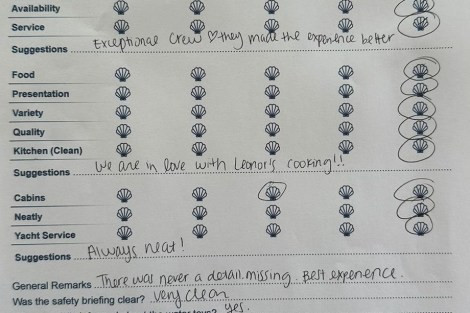 Availability
Service
Suggestions Exceptional crew ♡ they made the experience better
Food
Presentation
Variety
Quality
Kitchen (Clean)
Suggestions We are in love with Leonor's cooking!!
Cabins
Neatly
Yacht Service
Suggestions Always neat!
General Remarks There was never a detail missing. Best experience.
Was the safety briefing clear? very clear
yes.